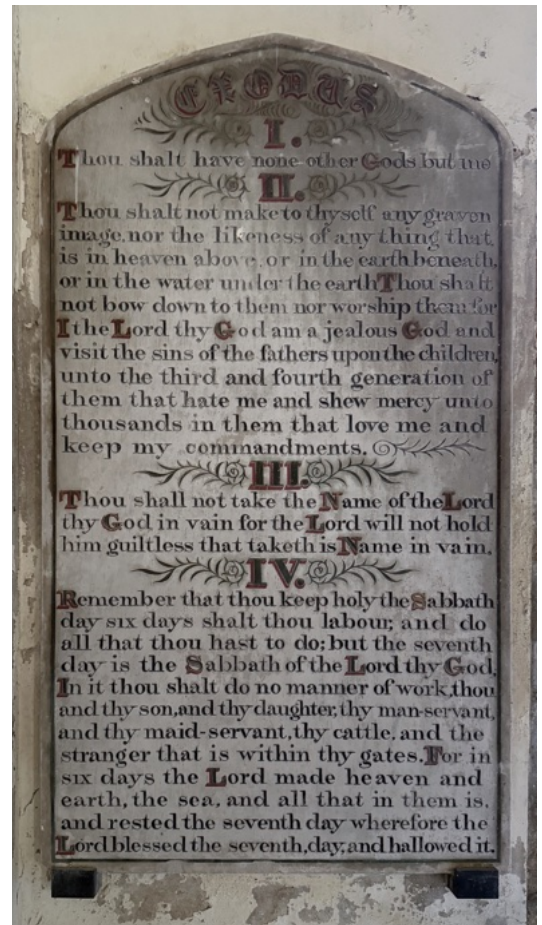 EXODUS
I.
Thou shalt have none other Gods but me
II.
Thou shalt not make to thyself any graven
image, nor the likeness of any thing that
is in heaven above, or in the earth beneath,
or in the water under the earth Thou shalt
not bow down to them nor worship them for
I the Lord thy God am a jealous God and
visit the sins of the fathers upon the children,
unto the third and fourth generation of
them that hate me and shew mercy unto
thousands in them that love me and
keep my commandments.
III.
Thou shall not take the Name of the Lord
thy God in vain for the Lord will not hold
him guiltless that taketh is Name in vain.
IV.
Remember that thou keep holy the Sabbath
day six days shalt thou labour, and do
all that thou hast to do; but the seventh
day is the Sabbath of the Lord thy God,
In it thou shalt do no manner of work, thou
and thy son, and thy daughter, thy man-servant,
and thy maid-servant, thy cattle, and the
stranger that is within thy gates. For in
six days the Lord made heaven and
earth, the sea, and all that in them is,
and rested the seventh day wherefore the
Lord blessed the seventh, day, and hallowed it.